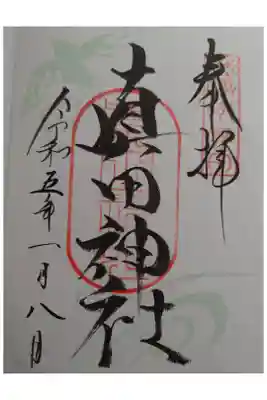 奉拝
真田神社
令和五年一月八日